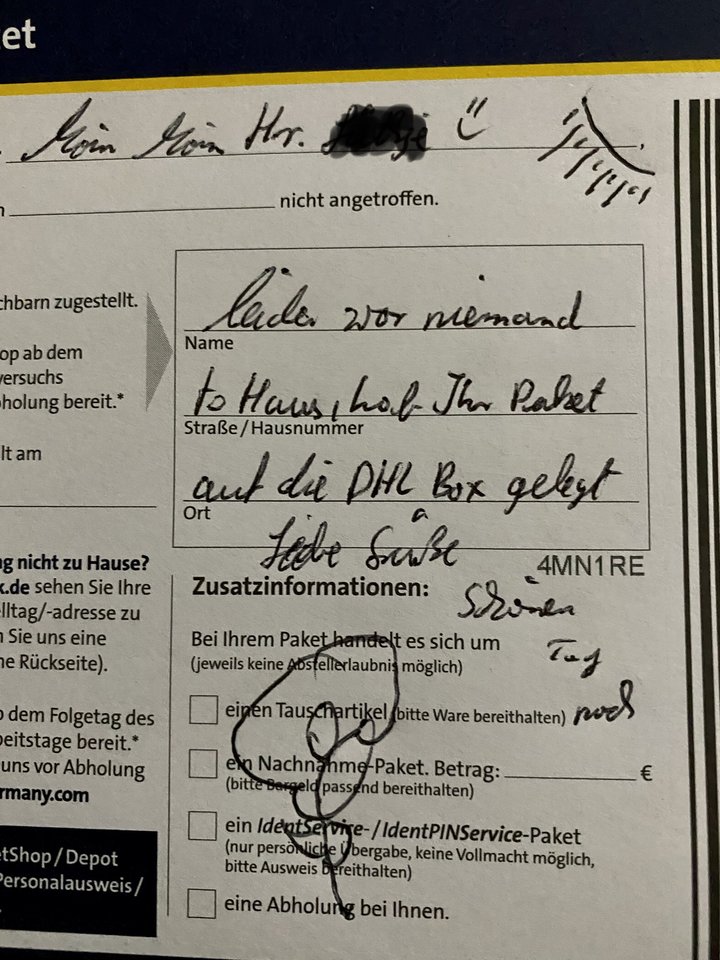 et
Moin Moin Hr.
nicht angetroffen.
chbarn zugestellt.
op ab dem
versuchs
holung bereit.*
lt am
leider war niemand
Name
to Haus, hab Ihr Paket
Straße/Hausnummer
auf die DHL Box gelegt
Ort
Liebe Grüße
4MN1RE
g nicht zu Hause?
k.de sehen Sie Ihre
lltag/-adresse zu
n Sie uns eine
he Rückseite).
o dem Folgetag des
beitstage bereit.*
uns vor Abholung
rmany.com
etShop/Depot
Personalausweis/
Zusatzinformationen:
Schönen
Tag
noch
Bei Ihrem Paket handelt es sich um
(jeweils keine Abstellerlaubnis möglich)
einen Tauschartikel (bitte Ware bereithalten)
ein Nachnahme-Paket. Betrag: €
(bitte Bargeld passend bereithalten)
ein IdentService-/IdentPINService-Paket
(nur persönliche Übergabe, keine Vollmacht möglich,
bitte Ausweis bereithalten)
eine Abholung bei Ihnen.